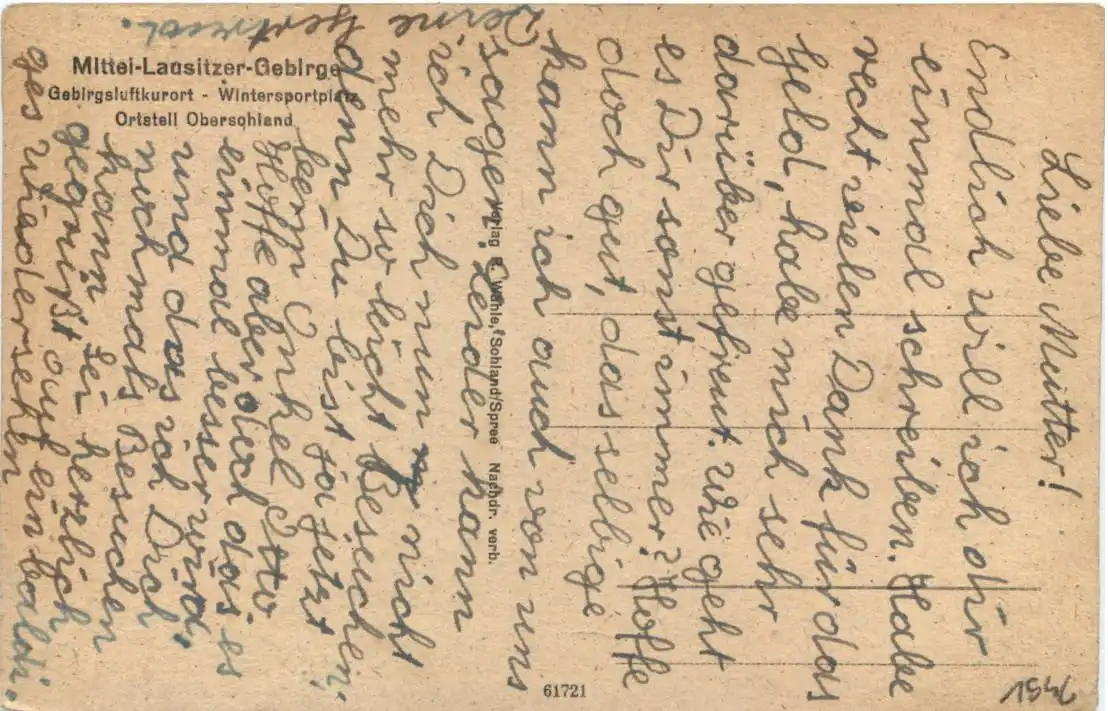 Mittel-Lausitzer-Gebirge
Gebirgsluftkurort - Wintersportplatz
Ortsteil Obersohland
Verlag R. Wähle, Sohland/Spree Nachdr. verb.
61721
Liebe Mutter!
Endlich will ich dir
einmal schreiben. Habe
recht vielen Dank für das
Geld, habe mich sehr
darüber gefreut. Wie geht
es Dir sonst immer? Hoffe
doch gut, das selbige
kann ich auch von uns
sagen. Leider kann
ich Dich nun nicht
mehr so leicht Besuchen,
denn Du bist ja jetzt
beim Onkel Otto
Hoffe aber doch das es
einmal besser wird,
und das ich Dich
nochmals Besuchen
kann. Sei herzlich
gegrüßt auf ein baldi-
ges Wiedersehen
Deine
Gertrud.